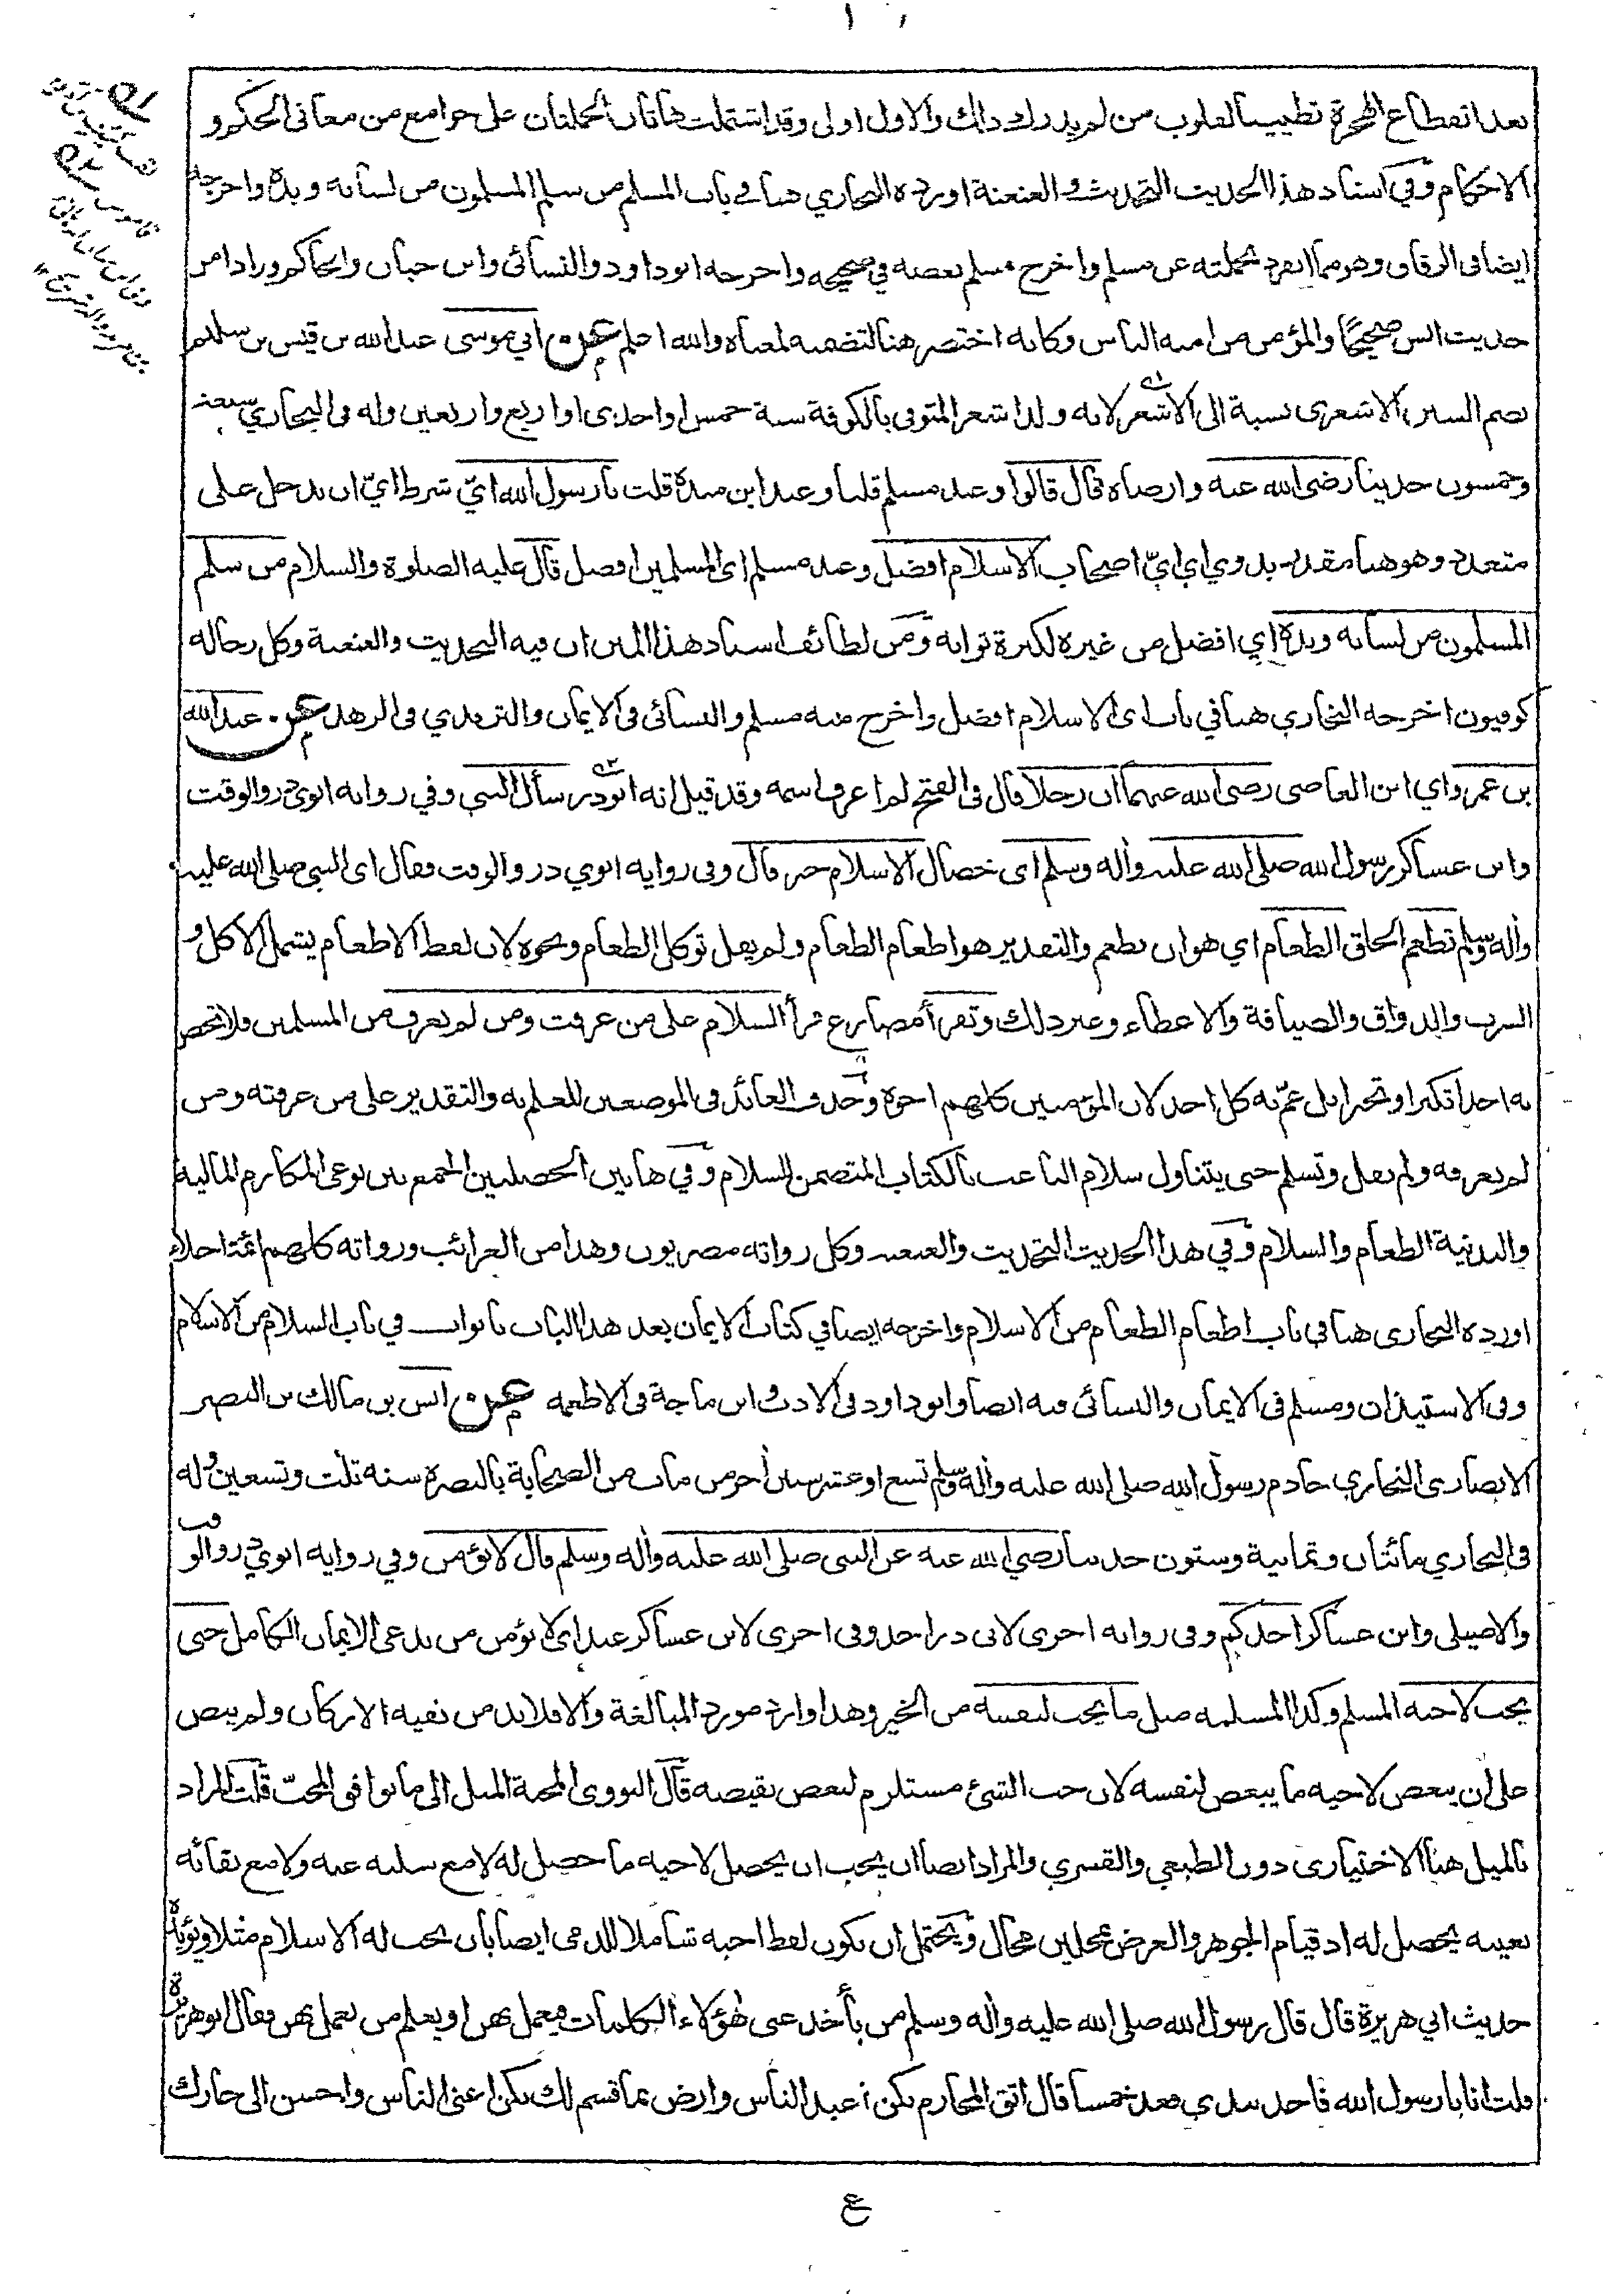 بعد انقطاع الهجرة تطييبا لقلوب من لم يدرك ذلك والاول اولى وقد اشتملت هاتان الجملتان على جوامع من معاني الحكم و
الاحكام وفي اسناد هذا الحديث التحديث والعنعنة اورده البخاري هنا في باب المسلم من سلم المسلمون من لسانه ويده واخرجه
ايضا في الرقاق وهو مما انفرد بجملته عن مسلم واخرج مسلم بعضه في صحيحه واخرجه ابو داود والنسائي وابن حبان والحاكم وزاد من
حديث انس صحيحًا والمؤمن من امنه الناس وكانه اختصر هنا لتضمنه لمعناه والله اعلم عن ابي موسى عبد الله بن قيس بن سليم
بضم السين الاشعري نسبة الى الاشعر لانه ولد اشعر المتوفى بالكوفة سنة خمس او احدى او اربع واربعين وله في البخاري سبعة
وخمسون حديثا رضي الله عنه وارضاه قال قالوا وعند مسلم قلنا وعند ابن مندة قلت يا رسول الله ايّ شرط ايّ ان يدخل على
متعدد وهو هنا مقدر بذوي اي ايّ اصحاب الاسلام افضل وعند مسلم اي المسلمين افضل قال عليه الصلوة والسلام من سلم
المسلمون من لسانه ويده اي افضل من غيره لكثرة ثوابه ومن لطائف اسناد هذا المتن ان فيه التحديث والعنعنة وكل رجاله
كوفيون اخرجه البخاري هنا في باب اي الاسلام افضل واخرج منه مسلم والنسائي في الايمان والترمذي في الزهد عن عبد الله
بن عمرو اي ابن العاصي رضي الله عنهما ان رجلا قال في الفتح لم اعرف اسمه وقد قيل انه ابوذر سأل النبي وفي رواية ابوي ذر والوقت
وابن عساكر رسول الله صلى الله عليه واله وسلم اي خصال الاسلام خير قال وفي رواية ابوي ذر والوقت فقال اي النبي صلى الله عليه
واله وسلم تطعم الخلق الطعام اي هو ان تطعم والتقدير هو اطعام الطعام ولم يقل توكل الطعام ونحوه لان لفظ الاطعام يشمل الاكل و
الشرب والذواق والضيافة والاعطاء وغير ذلك وتقرأ مضارع قرأ السلام على من عرفت ومن لم تعرف من المسلمين فلا تخص
به احدا تكبرا وتجبرا بل عمّ به كل احد لان المؤمنين كلهم اخوة وحذف العائد في الموضعين للعلم به والتقدير على من عرفته ومن
لم تعرفه ولم يقل وتسلم حتى يتناول سلام الباعث بالكتاب المتضمن السلام وفي هاتين الخصلتين الجمع بين نوعي المكارم المالية
والبدنية الطعام والسلام وفي هذا الحديث التحديث والعنعنة وكل رواته مصريون وهذا من الغرائب ورواته كلهم ائمة اجلاء
اورده البخاري هنا في باب اطعام الطعام من الاسلام واخرجه ايضا في كتاب الايمان بعد هذا الباب بابواب في باب السلام من الاسلام
وفي الاستيذان ومسلم في الايمان والنسائي فيه ايضا وابو داود في الادب وابن ماجة في الاطعمه عن انس بن مالك بن النضر
الانصاري النجاري خادم رسول الله صلى الله عليه واله وسلم تسع او عشر سنين اخر من مات من الصحابة بالبصرة سنه ثلث وتسعين وله
في البخاري مائتان وثمانية وستون حديثا رضي الله عنه عن النبي صلى الله عليه واله وسلم قال لا يؤمن وفي رواية ابوي ذر والوقت
والاصيلي وابن عساكر احدكم وفي رواية اخرى لابي ذر احد وفي اخرى لابن عساكر عبد اي لا يؤمن من يدعي الايمان الكامل حتى
يحب لاخيه المسلم وكذا المسلمه مثل ما يحب لنفسه من الخير وهذا وارد مورد المبالغة والا فلا بد من بقية الاركان ولم ينص
على ان يبغض لاخيه ما يبغض لنفسه لان حب الشئ مستلزم لبغض نقيضه قال النووي المحبة الميل الى ما يوافق المحبّ قلت المراد
بالميل هنا الاختياري دون الطبعي والقسري والمراد ايضا ان يحب ان يحصل لاخيه ما حصل له لا مع سلبه عنه ولا مع بقائه
بعينه يحصل له اذ قيام الجوهر والعرض بمحلين محال ويحتمل ان يكون لفظ اخيه شاملا للذمي ايضا بان يحب له الاسلام مثلا ويؤيده
حديث ابي هريرة قال قال رسول الله صلى الله عليه واله وسلم من يأخذ عني هؤلاء الكلمات فيعمل بهن او يعلم من يعمل بهن فقال ابو هريرة
قلت انا يا رسول الله فاخذ بيدي فعد خمسا قال اتق المحارم تكن اعبد الناس وارض بما قسم لك تكن اغنى الناس واحسن الى جارك
ع